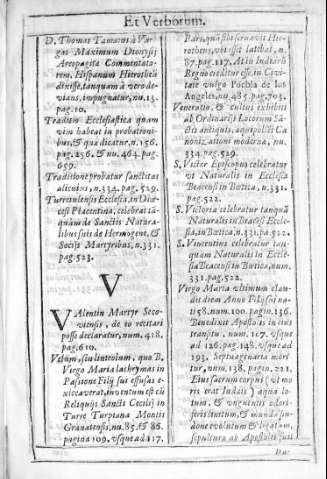 Et Verborum.
D. Thomas Tamaius à Var-
gas Maximum Dionysij
Areopagitæ Commentato-
rem, Hispanum Hierotheũ
dixisse, tanquam à vero de-
vians, impugnatur, nu. 13.
pag. 10.
Traditio Ecclesiastica quam
vim habeat in probationi-
bus, & quæ dicatur, n. 156.
pag. 256. & nu. 464. pag.
659.
Traditione probatur sanctitas
alicuius, n. 334. pag. 529.
Turciulensis Ecclesia, in Diœ-
cesi Placentina, celebrat tã-
quam de Sanctis Natura-
libus suis de Hermogene, &
Socijs Martyribus, n. 331.
pag. 523.
V
VAlentin Martyr Seco-
viensis, de eo recitari
posse declaratur, num. 428.
pag. 610.
Velum, seu linteolum, quo B.
Virgo Maria lachrymas in
Passione Filij sui effusas e-
xiccaverat, inventum est cũ
Reliquijs Sancti Cecilij in
Turre Turpiana Montis
Granatensis, nu. 85. & 86.
pagina 109. vsque ad 117.
Pars, quã sibi servavit Hie-
rotheus, vbi essit latebat, n.
87. pag. 117. At in Indiarũ
Regno creditur esse, in Civi-
tate vulgo Puebla de los
Angeles, nu. 485. pag. 703.
Veneratio, & cultus exhibitus
ab Ordinarijs Locorum Sã-
ctis antiquis, æquipollet Ca-
nonizationi modernæ, nu.
334. pag. 529.
S. Victor Episcopus celebratur
vt Naturalis in Ecclesia
Beacensi in Bætica, n. 331.
pag. 522.
S. Victoria celebratur tanquã
Naturalis in Beacesi Eccle-
sia, in Bætica, n. 331. pa. 522.
S. Vincentius celebratur tan-
quam Naturalis in Eccle-
sia Beacensi in Bætica, num.
331. pag. 522.
Virgo Maria vltimum clau-
dit diem Anno Filij sui na-
ti 58. num. 100. pagin. 136.
Benedixit Apostolis in eius
transitu, num. 107. vsque
ad 126. pag. 148. vsque ad
193. Septuagenaria mori-
tur, num. 138. pagin. 221.
Eius sacrum corpus (vt mo-
ris erat Iudaici) aqua lo-
tum, & vnguentis odori-
feris linitum, & munda sin-
done evolutum & ligatum,
sepultura ab Apostolis fuit